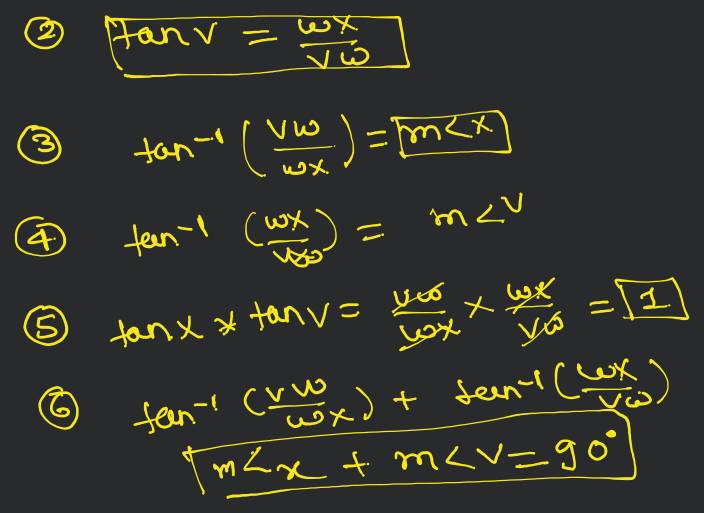 ② tan V = WX / VW
③ tan⁻¹ (VW / WX) = m∠X
④ tan⁻¹ (WX / VW) = m∠V
⑤ tan X * tan V = VW / WX × WX / VW = 1
⑥ tan⁻¹ (VW / WX) + tan⁻¹ (WX / VW)
m∠x + m∠V = 90°